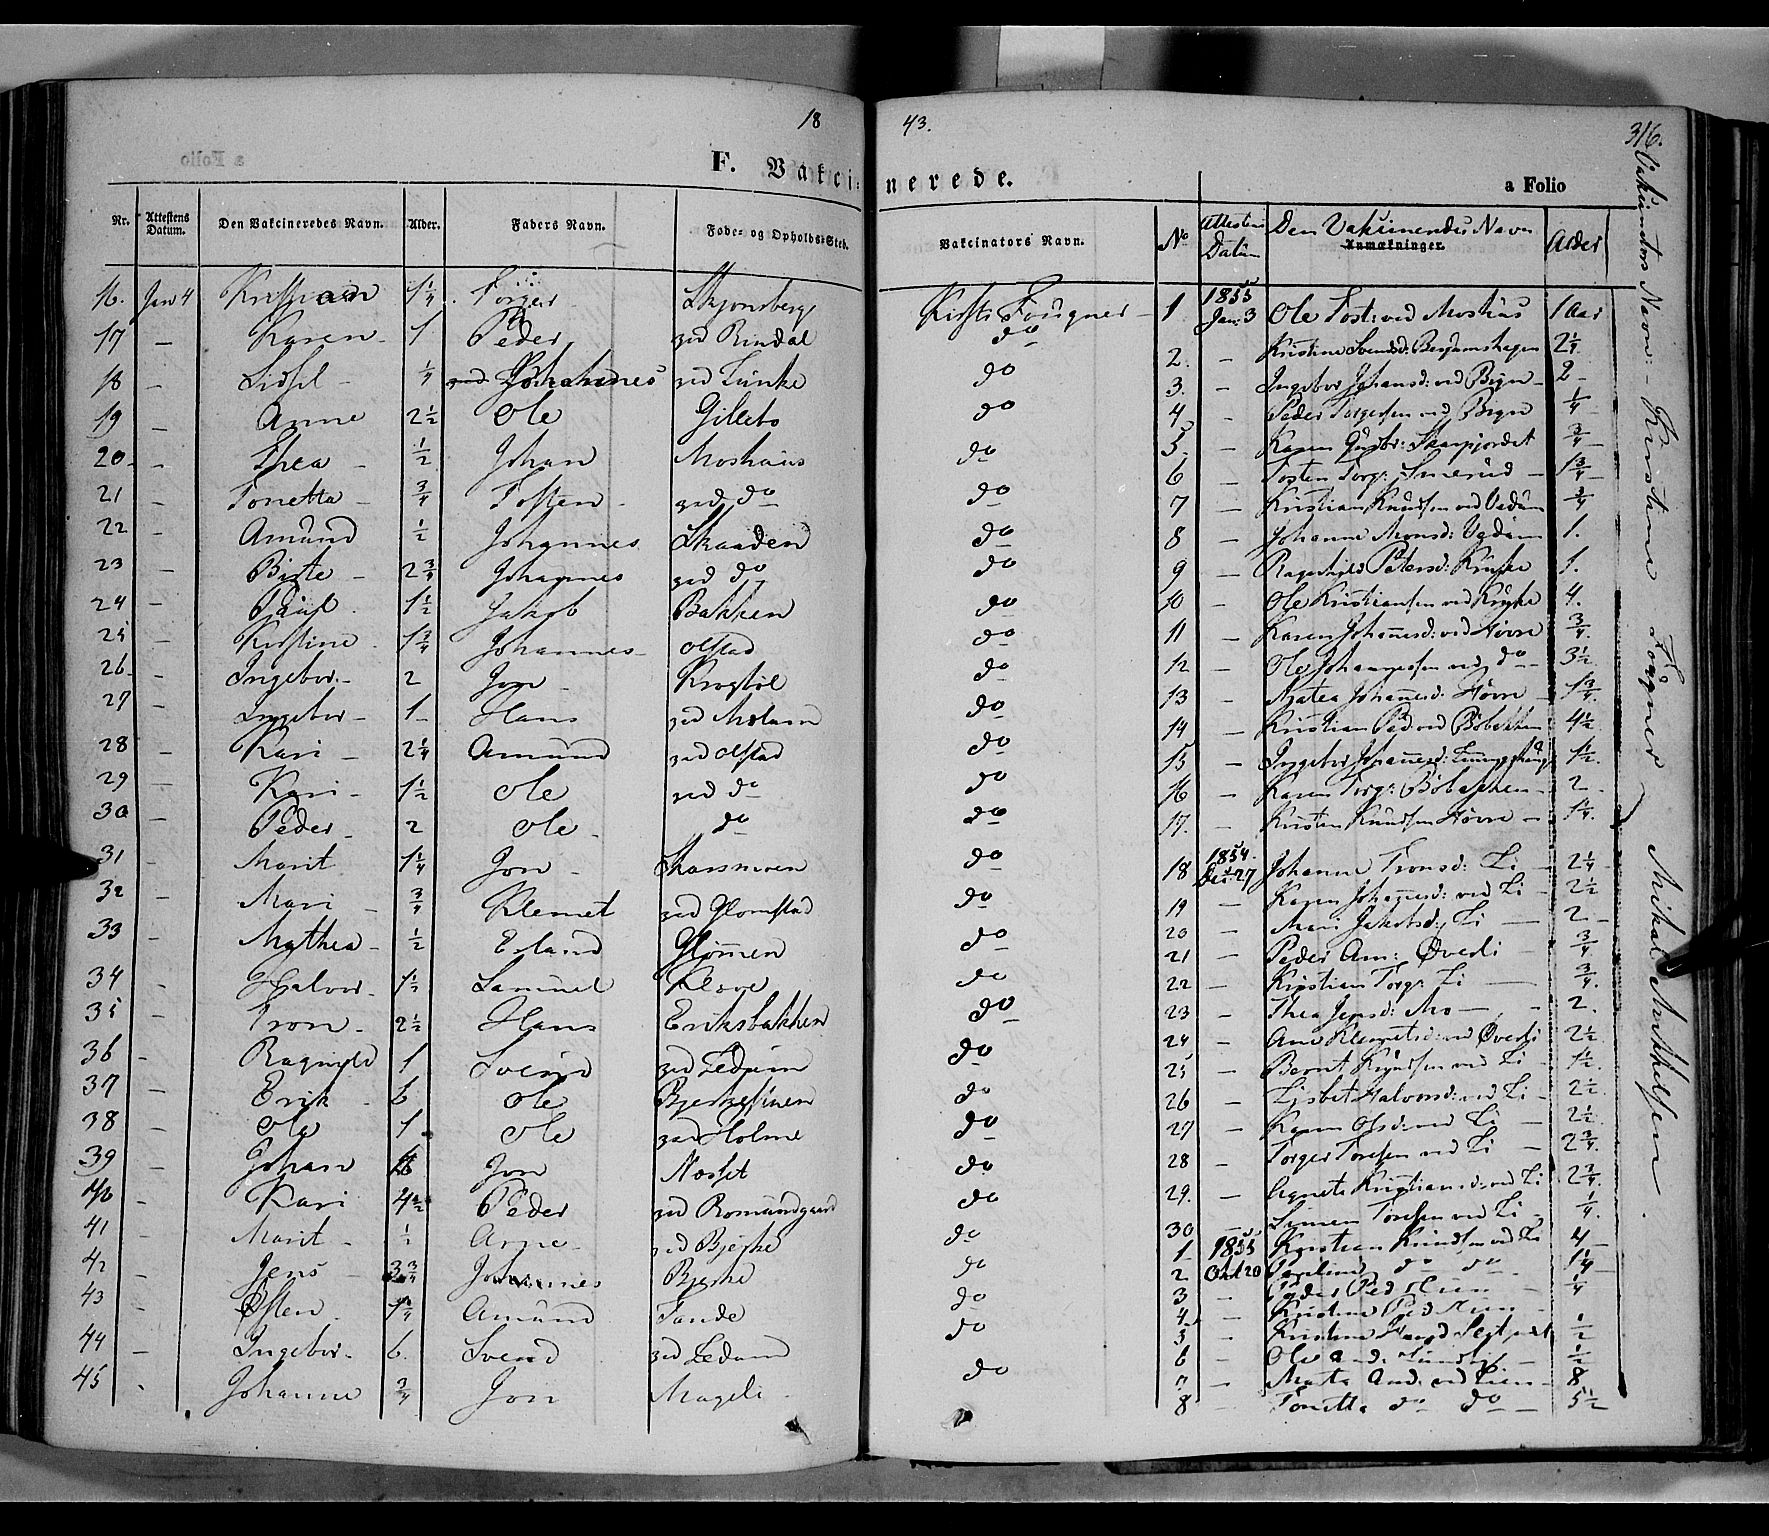 18
43.
316.
F. Vakcinerede.
a Folio
Nr. Attestens Datum. Den Vakcineredes Navn. Alder. Faders Navn. Føde- og Opholds-Sted. Vakcinators Navn.
16. Jan 4 Kristian 1¼ Torger Skjonsberg Kirsti Fougner
17 — Karen 1 Peder ved Rindal do
18 — Lisbet ¼ Johannes ved Lunke do
19 — Anne 2½ Ole Gillebo do
20 — Thea ½ Johan Moshuus do
21 — Tonetta ¾ Tosten ved do do
22 — Amund ½ Johannes Skaaden do
23 — Birte 2¾ Johannes ved do do
24 — Paul 1½ Jakob Bakken do
25 — Kristine 1¾ Johannes Olstad do
26 — Ingebor 2 Jon Krogbøl do
27 — Ingebor 1 Hans ved do
28 — Kari 2¼ Amund ved Olstad do
29 — Kari 1½ Ole ved do do
30 — Peder 2 Ole do do
31 — Marit 1¼ Jon Skarsmoen do
32 — Mari ¾ Klemet ved Glomstad do
33 — Mathea ½ Erland Glømmen do
34 — Halvor 1½ Samuel Kleve do
35 — Tron 2½ Hans Eriksbakken do
36 — Ragnild 1 Svend ved Ledum do
37 — Erik 6 Ole do
38 — Ole 1 Ole ved Holme do
39 — Johan Jon Nosset do
40 — Kari 4½ Peder ved Romundgaard do
41 — Marit ½ Arne ved Bjerke do
42 — Jens 3¾ Johannes Bjerke do
43 — Østen 1¼ Amund Tande do
44 — Ingebor 6. Svend ved Ledum do
45 Johanne ¾ Jon Mageli do
No Attestens Datum Den Vakcineredes Navn Anmærkninger. Alder
1 1855 Jan: 3 Ole Tost: ved Moshus 1 Aar
2. — Kristine Svendsd: 2¼
3. — Ingebor Johansd: ved Brynn 2
4 — Peder Torgersen ved Brynn ¼
5. — Karen Gulbr: Skarpjordet ¾
6 — Tosten Torg: Smerud 1¾
7 — Kristian Knudsen ved Vedum ¾
8 — Johanne Monsd: 1.
9 — Ragnhild Petersd: Kruke 1.
10 — Ole Kristiansen ved Kruke 4.
11 — Karen Johannesd: ved Høvre ¾
12 — Ole Johannessen ved do 3½
13 — Matea Johannesd: Høvre 1¾
14 — Kristian Ped ved Bøbakken 4½
15 — Ingebor Johannesd: 1½
16 — Karen Torg: Bøbakken 2
17. — Kristen Knudsen Høvre 1¼
18 1854. Des: 27 Johanne Tronsd: Li 2¼
19 — Karen Johannesd: ved Li 2½
20 — Mari Jakobsd: Li 2
21 — Peder Am: Øverli ¾
22 — Kristian Torg: Li ¾
23 — Thea Jensd: Mo 2.
24 — Ane Klemetsd: ved Øverli 2½
25 — Bernt Knudsen ved Li 1½
26 — Lisbet Halvorsd: ved Li 2½
27 — Karen Olsd: ved Li 2½
28 — Torger Toresen ved Li 2¾
29. — Agnete Kristiansd: ved Li 2¾
30 Simen Toresen ved Li ¼
1 1855 Kristian Knudsen ved Li 4
2 Okt 20 do do 1¼
3 — Peder Ped ¼
4 — Kristine Ped
5 — Kristine ½
6 — Ole And: ½
7 — Marte And: ved Lien 8
8 — Tonetta do do 5½
Vakcinators Navn: – Kristine Fougner Mikal Mikkelsen